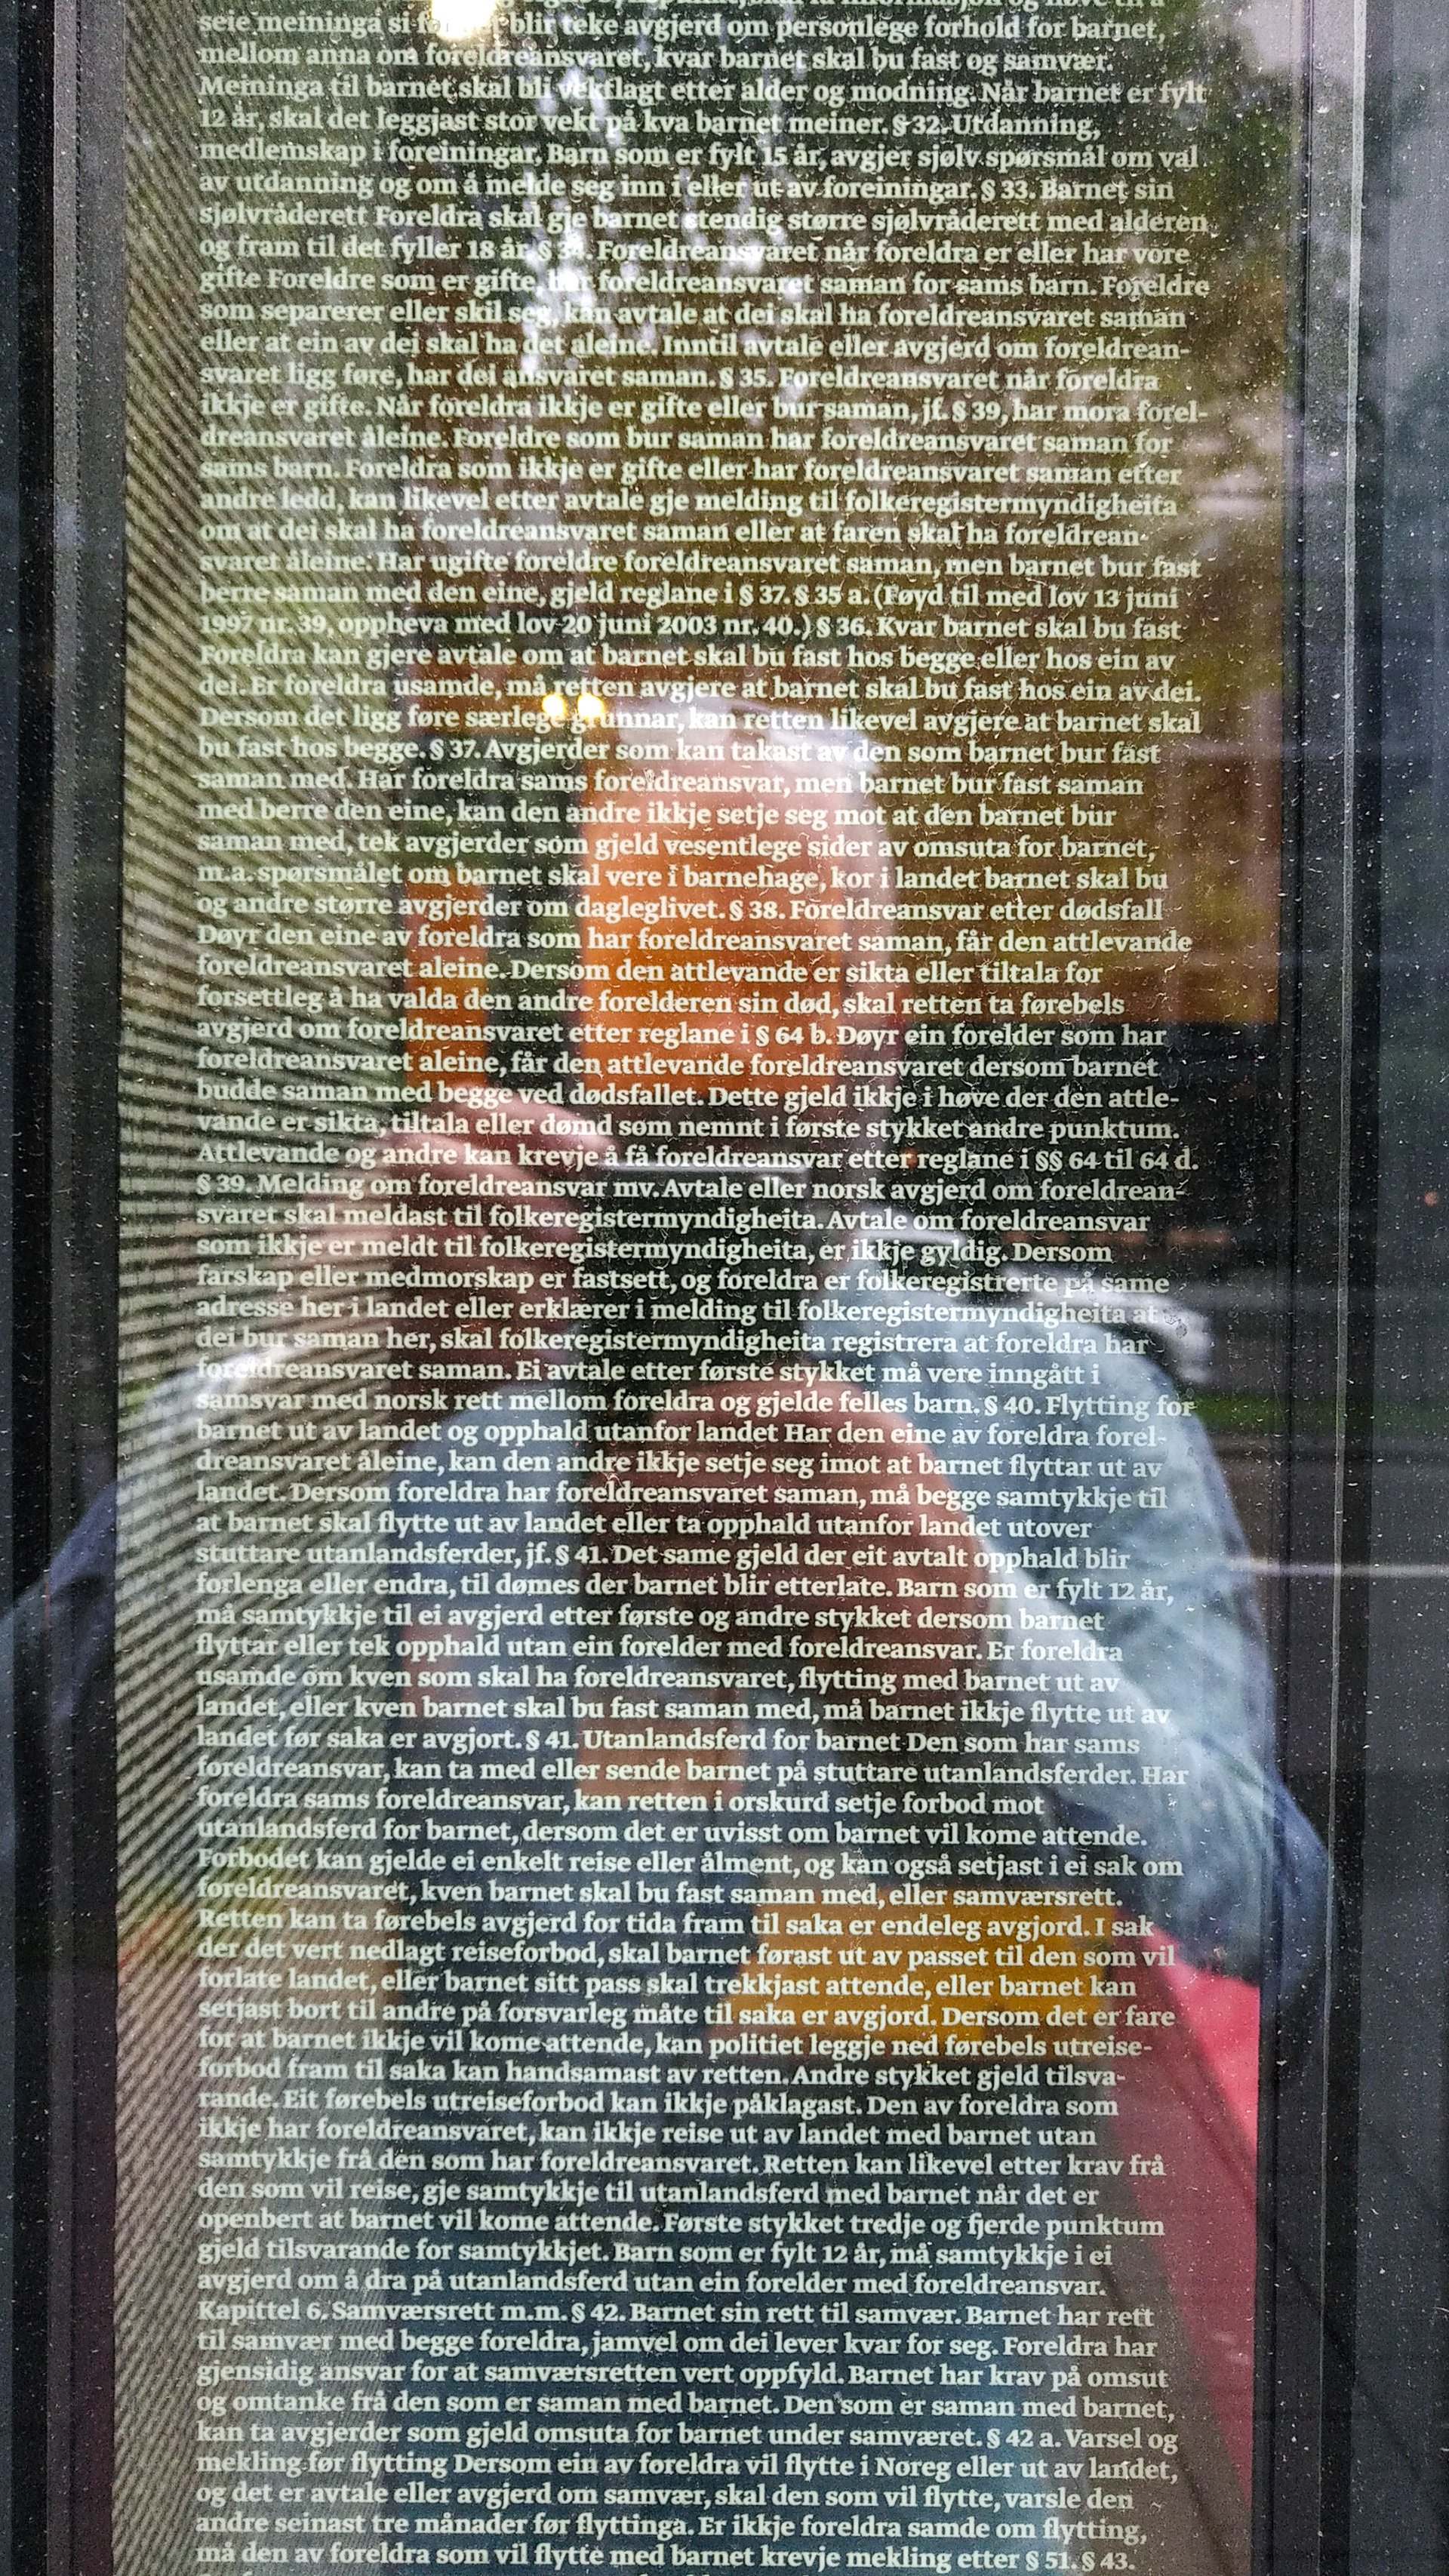 seie meininga si før blir teke avgjerd om personlege forhold for barnet,
mellom anna om foreldreansvaret, kvar barnet skal bu fast og samvær.
Meininga til barnet skal bli vektlagt etter alder og modning. Når barnet er fylt
12 år, skal det leggjast stor vekt på kva barnet meiner. § 32. Utdanning,
medlemskap i foreiningar. Barn som er fylt 15 år, avgjer sjølv spørsmål om val
av utdanning og om å melde seg inn i eller ut av foreiningar. § 33. Barnet sin
sjølvråderett Foreldra skal gje barnet stendig større sjølvråderett med alderen
og fram til det fyller 18 år. § 34. Foreldreansvaret når foreldra er eller har vore
gifte Foreldre som er gifte, har foreldreansvaret saman for sams barn. Foreldre
som separerer eller skil seg, kan avtale at dei skal ha foreldreansvaret saman
eller at ein av dei skal ha det åleine. Inntil avtale eller avgjerd om foreldrean-
svaret ligg føre, har dei ansvaret saman. § 35. Foreldreansvaret når foreldra
ikkje er gifte. Når foreldra ikkje er gifte eller bur saman, jf. § 39, har mora forel-
dreansvaret åleine. Foreldre som bur saman har foreldreansvaret saman for
sams barn. Foreldra som ikkje er gifte eller har foreldreansvaret saman etter
andre ledd, kan likevel etter avtale gje melding til folkeregistermyndigheita
om at dei skal ha foreldreansvaret saman eller at faren skal ha foreldrean-
svaret åleine. Har ugifte foreldre foreldreansvaret saman, men barnet bur fast
berre saman med den eine, gjeld reglane i § 37. § 35 a. (Føyd til med lov 13 juni
1997 nr. 39, oppheva med lov 20 juni 2003 nr. 40.) § 36. Kvar barnet skal bu fast
Foreldra kan gjere avtale om at barnet skal bu fast hos begge eller hos ein av
dei. Er foreldra usamde, må retten avgjere at barnet skal bu fast hos ein av dei.
Dersom det ligg føre særlege grunnar, kan retten likevel avgjere at barnet skal
bu fast hos begge. § 37. Avgjerder som kan takast av den som barnet bur fast
saman med. Har foreldra sams foreldreansvar, men barnet bur fast saman
med berre den eine, kan den andre ikkje setje seg mot at den barnet bur
saman med, tek avgjerder som gjeld vesentlege sider av omsuta for barnet,
m.a. spørsmålet om barnet skal vere i barnehage, kor i landet barnet skal bu
og andre større avgjerder om dagleglivet. § 38. Foreldreansvar etter dødsfall
Døyr den eine av foreldra som har foreldreansvaret saman, får den attlevande
foreldreansvaret aleine. Dersom den attlevande er sikta eller tiltala for
forsettleg å ha valda den andre forelderen sin død, skal retten ta førebels
avgjerd om foreldreansvaret etter reglane i § 64 b. Døyr ein forelder som har
foreldreansvaret aleine, får den attlevande foreldreansvaret dersom barnet
budde saman med begge ved dødsfallet. Dette gjeld ikkje i høve der den attle-
vande er sikta, tiltala eller dømd som nemnt i første stykket andre punktum.
Attlevande og andre kan krevje å få foreldreansvar etter reglane i §§ 64 til 64 d.
§ 39. Melding om foreldreansvar mv. Avtale eller norsk avgjerd om foreldrean-
svaret skal meldast til folkeregistermyndigheita. Avtale om foreldreansvar
som ikkje er meldt til folkeregistermyndigheita, er ikkje gyldig. Dersom
farskap eller medmorskap er fastsett, og foreldra er folkeregistrerte på same
adresse her i landet eller erklærer i melding til folkeregistermyndigheita at
dei bur saman her, skal folkeregistermyndigheita registrera at foreldra har
foreldreansvaret saman. Ei avtale etter første stykket må vere inngått i
samsvar med norsk rett mellom foreldra og gjelde felles barn. § 40. Flytting for
barnet ut av landet og opphald utanfor landet Har den eine av foreldra forel-
dreansvaret åleine, kan den andre ikkje setje seg imot at barnet flyttar ut av
landet. Dersom foreldra har foreldreansvaret saman, må begge samtykkje til
at barnet skal flytte ut av landet eller ta opphald utanfor landet utover
stuttare utanlandsferder, jf. § 41. Det same gjeld der eit avtalt opphald blir
forlenga eller endra, til dømes der barnet blir etterlate. Barn som er fylt 12 år,
må samtykkje til ei avgjerd etter første og andre stykket dersom barnet
flyttar eller tek opphald utan ein forelder med foreldreansvar. Er foreldra
usamde om kven som skal ha foreldreansvaret, flytting med barnet ut av
landet, eller kven barnet skal bu fast saman med, må barnet ikkje flytte ut av
landet før saka er avgjort. § 41. Utanlandsferd for barnet Den som har sams
foreldreansvar, kan ta med eller sende barnet på stuttare utanlandsferder. Har
foreldra sams foreldreansvar, kan retten i orskurd setje forbod mot
utanlandsferd for barnet, dersom det er uvisst om barnet vil kome attende.
Forbodet kan gjelde ei enkelt reise eller ålment, og kan også setjast i ei sak om
foreldreansvaret, kven barnet skal bu fast saman med, eller samværsrett.
Retten kan ta førebels avgjerd for tida fram til saka er endeleg avgjord. I sak
der det vert nedlagt reiseforbod, skal barnet førast ut av passet til den som vil
forlate landet, eller barnet sitt pass skal trekkjast attende, eller barnet kan
setjast bort til andre på forsvarleg måte til saka er avgjord. Dersom det er fare
for at barnet ikkje vil kome attende, kan politiet leggje ned førebels utreise-
forbod fram til saka kan handsamast av retten. Andre stykket gjeld tilsva-
rande. Eit førebels utreiseforbod kan ikkje påklagast. Den av foreldra som
ikkje har foreldreansvaret, kan ikkje reise ut av landet med barnet utan
samtykkje frå den som har foreldreansvaret. Retten kan likevel etter krav frå
den som vil reise, gje samtykkje til utanlandsferd med barnet når det er
openbert at barnet vil kome attende. Første stykket tredje og fjerde punktum
gjeld tilsvarande for samtykkjet. Barn som er fylt 12 år, må samtykkje i ei
avgjerd om å dra på utanlandsferd utan ein forelder med foreldreansvar.
Kapittel 6. Samværsrett m.m. § 42. Barnet sin rett til samvær. Barnet har rett
til samvær med begge foreldra, jamvel om dei lever kvar for seg. Foreldra har
gjensidig ansvar for at samværsretten vert oppfyld. Barnet har krav på omsut
og omtanke frå den som er saman med barnet. Den som er saman med barnet,
kan ta avgjerder som gjeld omsuta for barnet under samværet. § 42 a. Varsel og
mekling før flytting Dersom ein av foreldra vil flytte i Noreg eller ut av landet,
og det er avtale eller avgjerd om samvær, skal den som vil flytte, varsle den
andre seinast tre månader før flyttinga. Er ikkje foreldra samde om flytting,
må den av foreldra som vil flytte med barnet krevje mekling etter § 51. § 43.